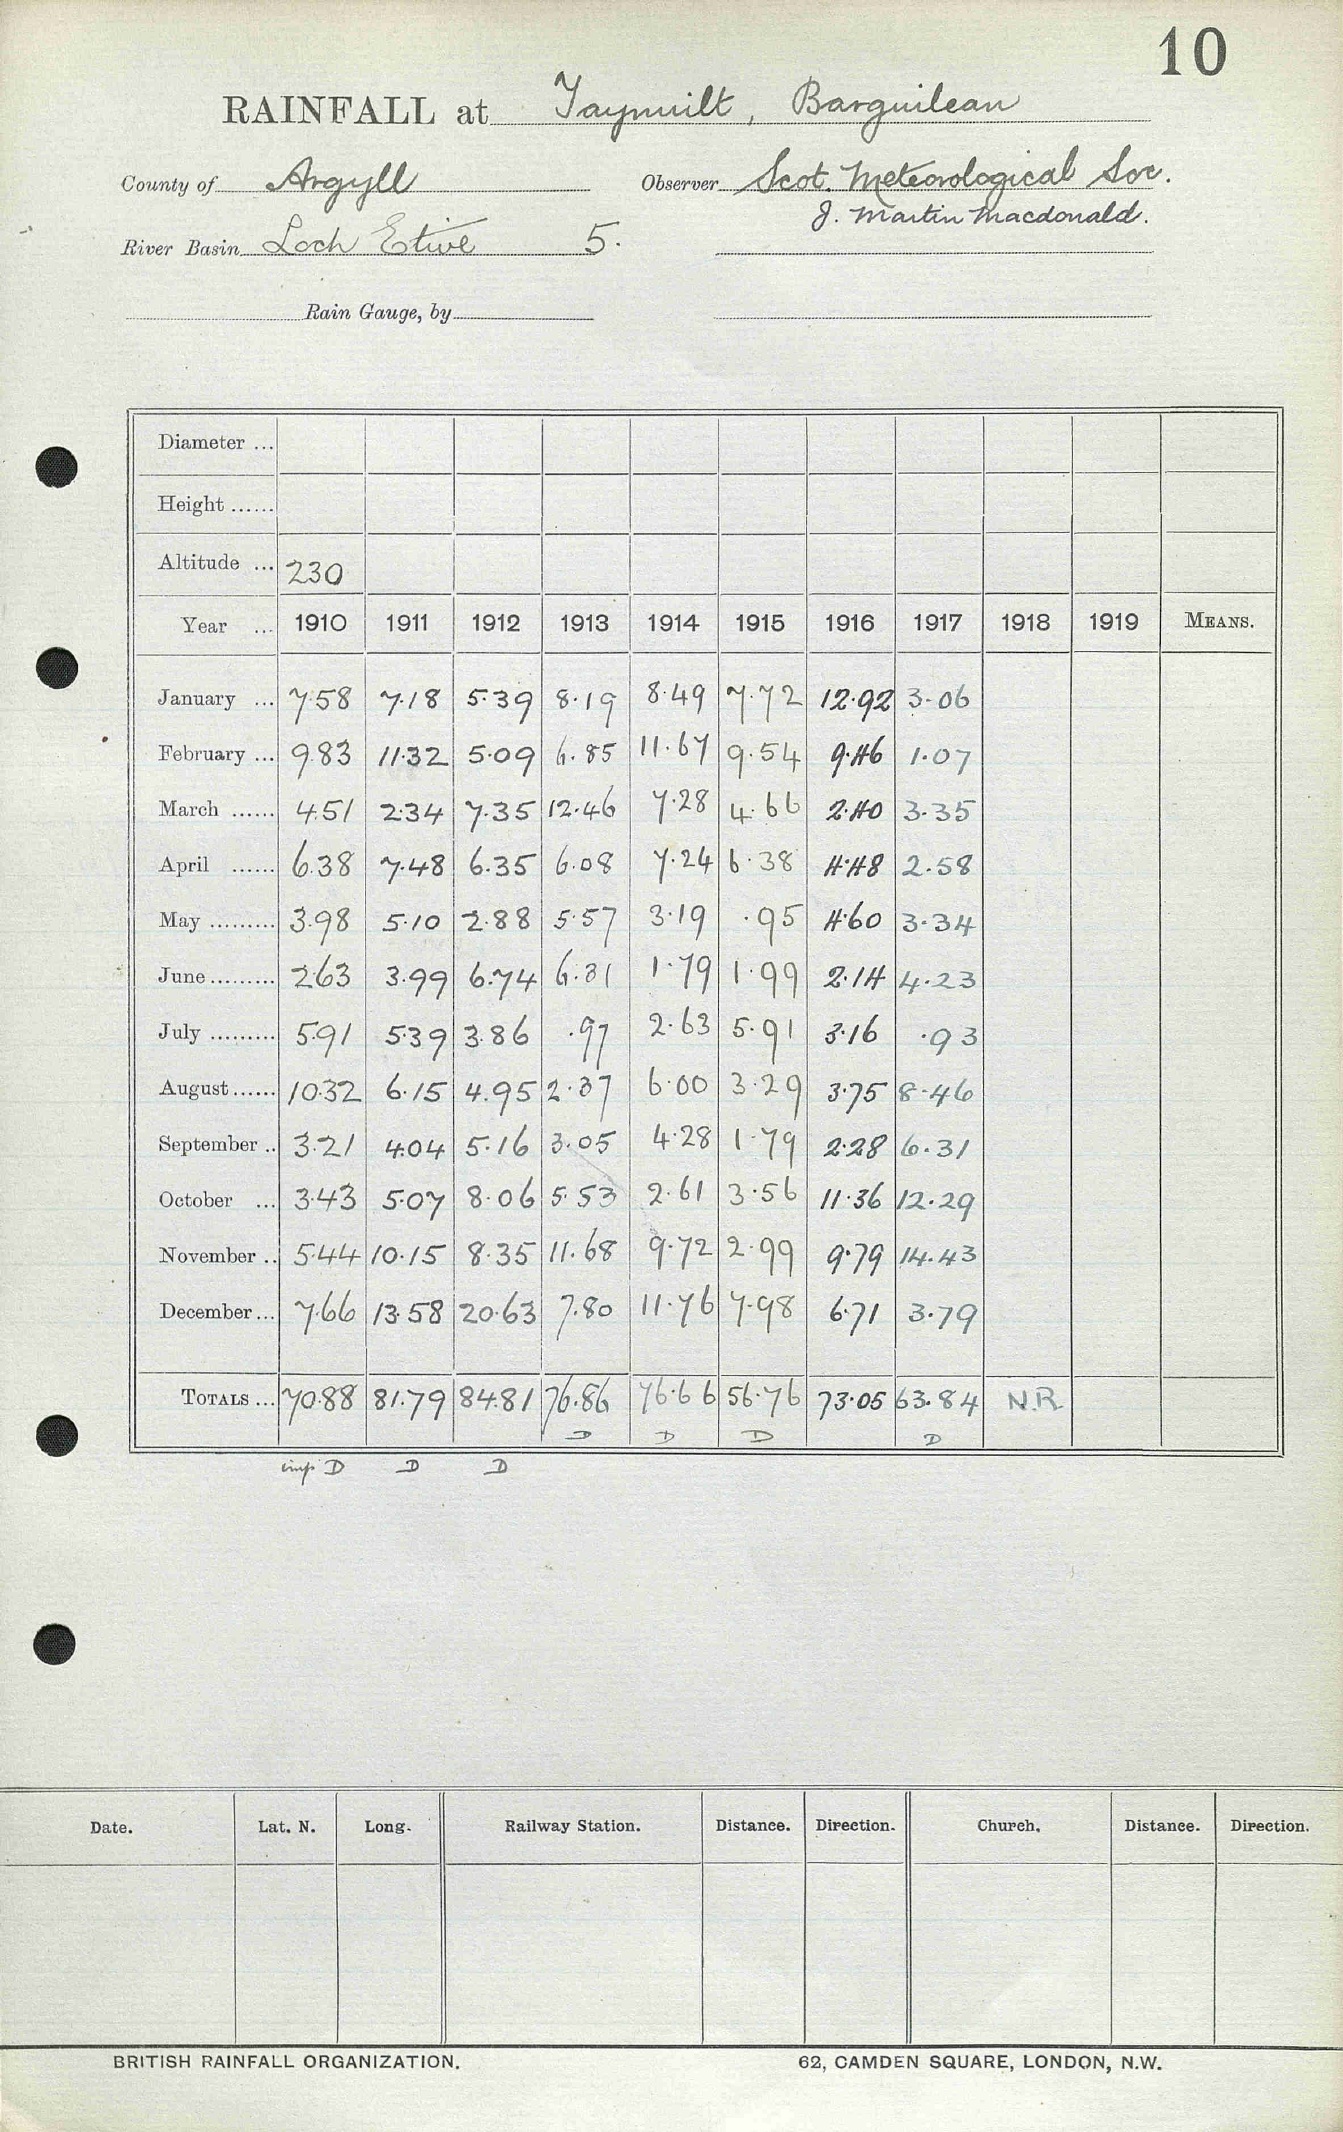 10
RAINFALL at Taynuilt, Barguilean
County of Argyll Observer Scot. Meteorological Soc.
J. Martin Macdonald.
River Basin Loch Etive 5.
Rain Gauge, by
Diameter ...
Height ......
Altitude ... 230
Year ... 1910 1911 1912 1913 1914 1915 1916 1917 1918 1919 MEANS.
January ... 7.58 7.18 5.39 8.19 8.49 7.72 12.92 3.06
February ... 9.83 11.32 5.09 6.85 11.67 9.54 9.46 1.07
March ...... 4.51 2.34 7.35 12.46 7.28 4.66 2.40 3.35
April ...... 6.38 7.48 6.35 6.08 7.24 6.38 4.48 2.58
May ......... 3.98 5.10 2.88 5.57 3.19 .95 4.60 3.34
June ......... 2.63 3.99 6.74 6.31 1.79 1.99 2.14 4.23
July ......... 5.91 5.39 3.86 .97 2.63 5.91 3.16 .93
August ...... 10.32 6.15 4.95 2.37 6.00 3.29 3.75 8.46
September .. 3.21 4.04 5.16 3.05 4.28 1.79 2.28 6.31
October ... 3.43 5.07 8.06 5.53 2.61 3.56 11.36 12.29
November .. 5.44 10.15 8.35 11.68 9.72 2.99 9.79 14.43
December ... 7.66 13.58 20.63 7.80 11.76 7.98 6.71 3.79
TOTALS ... 70.88 81.79 84.81 76.86 76.66 56.76 73.05 63.84 N.R.
D D D D
imp D D D
Date. Lat. N. Long. Railway Station. Distance. Direction. Church. Distance. Direction.
BRITISH RAINFALL ORGANIZATION. 62, CAMDEN SQUARE, LONDON, N.W.